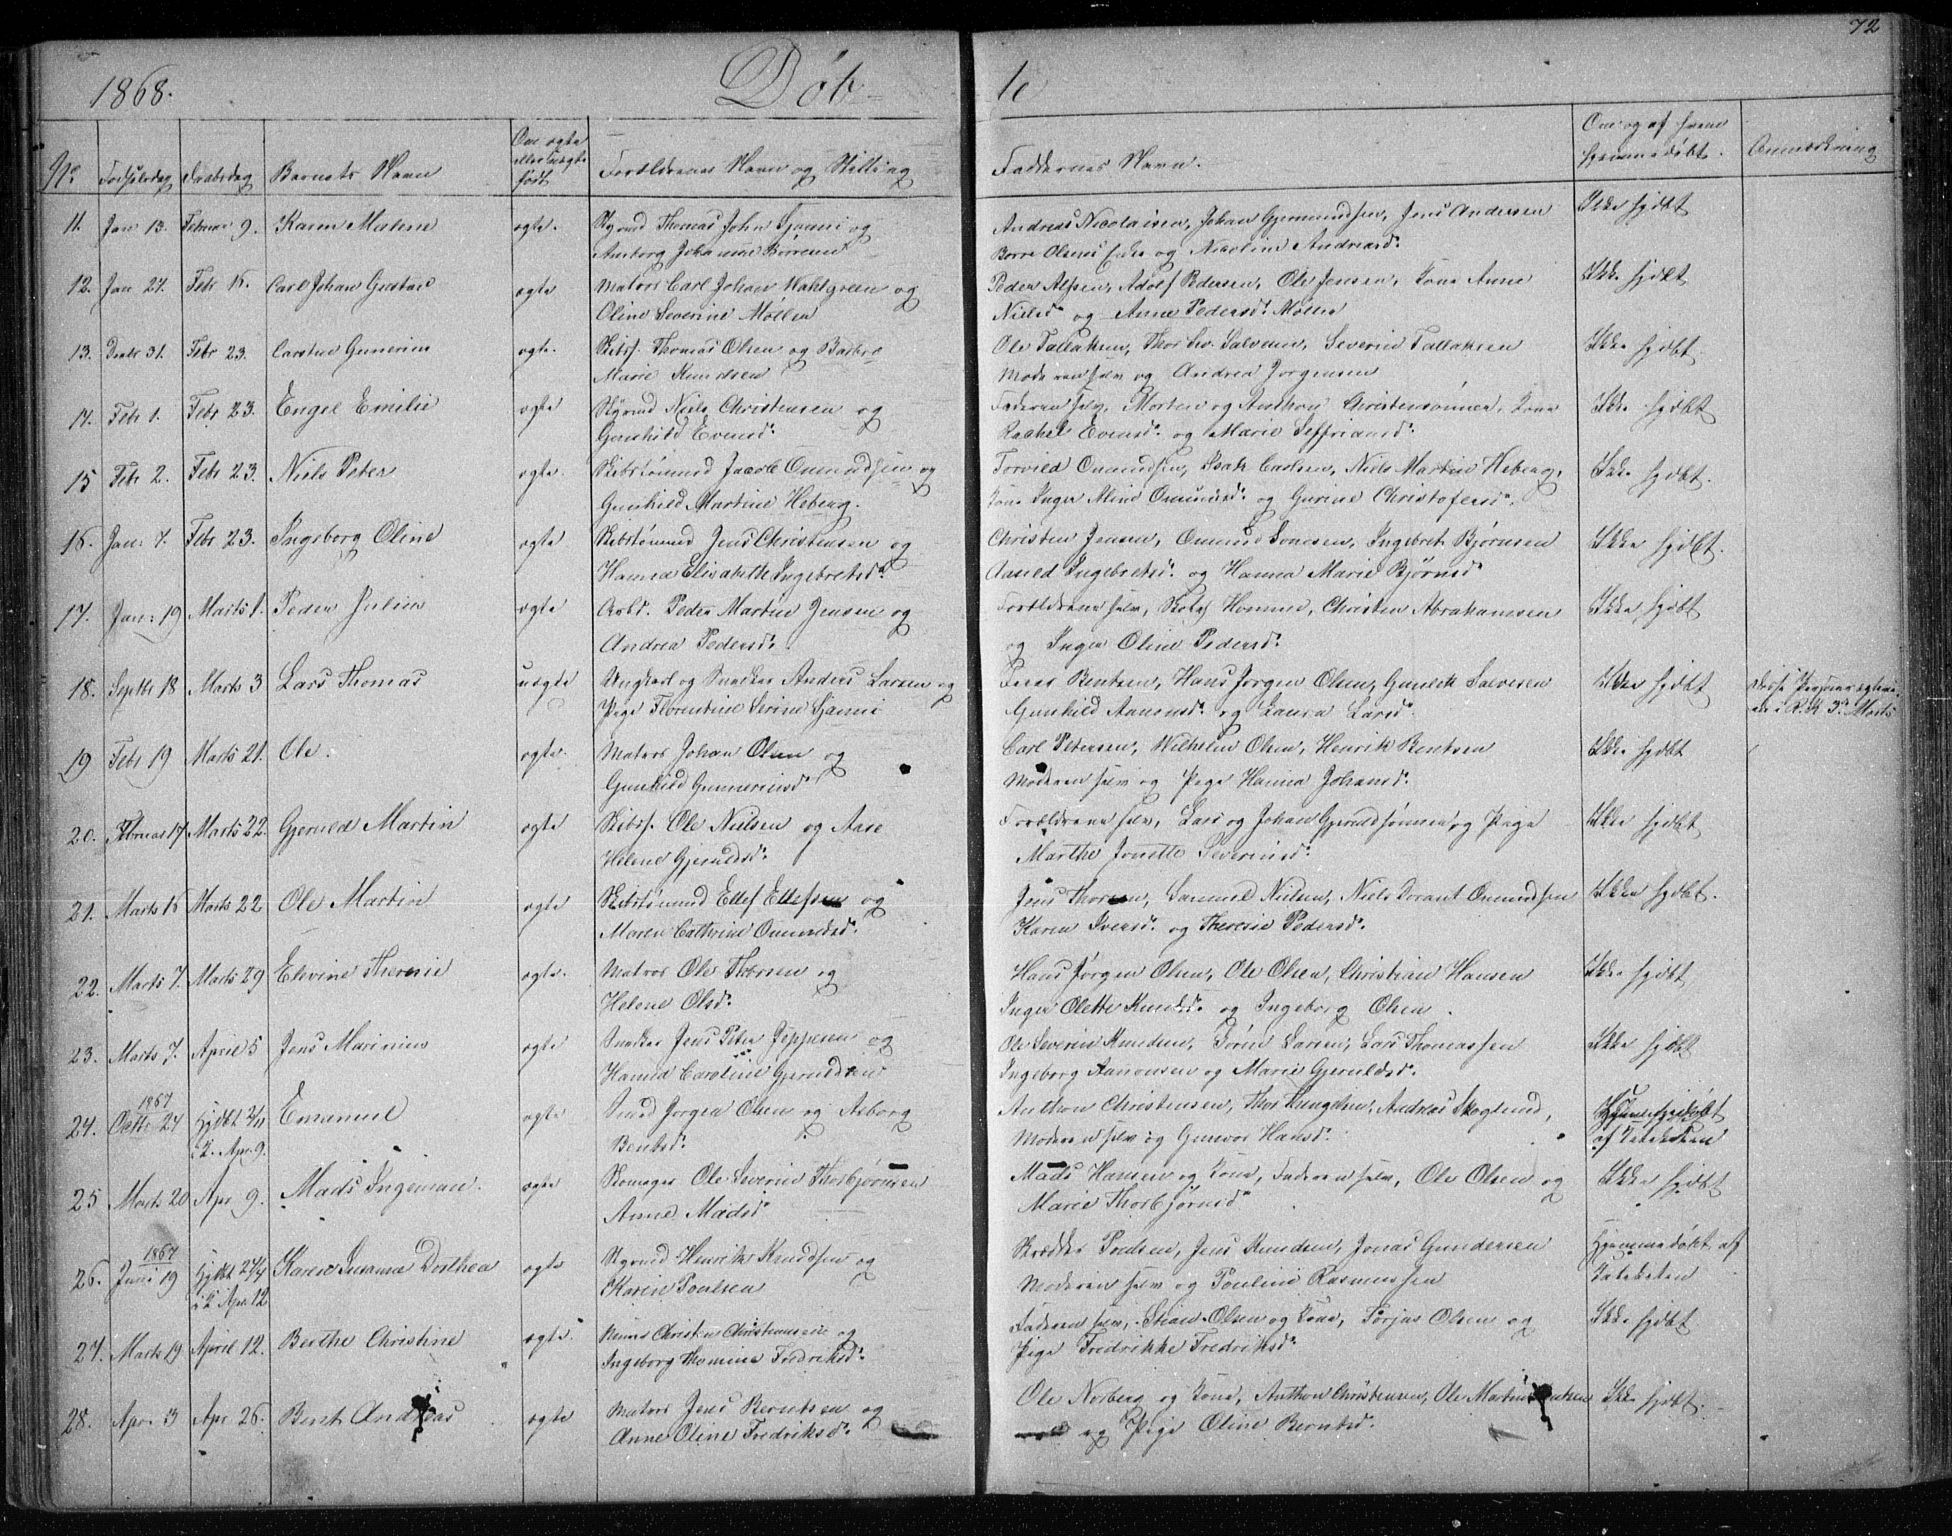 72
1868. Døb te
No Fødselsdag Daabsdag Barnets Navn Om ægte eller uægte født Forældrenes Navn og Stilling Faddernes Navn. Om og af hvem hjemmedøbt. Anmærkning
11. Jan 13. Februar 9. Karen Malene ægte. Styrmd Thomas John og Andreas Nicolaisen, Johan Gjermundsen, Jens Andersen Ikke hjdbt
Johanne Børresen og Nicoline Andreasd.
12. Jan 27. Febr 16. Carl Johan Gustav ægte Matros Carl Johan Wahlgreen og Peder Alfsen, Adolf Pedersen, Ole Jensen, Kone Anne Ikke hjdbt
Oline Severine Møller Nielsd. og Anne Pedersd. Møller
13. Decbr 31. Febr 23. Carsten Gunerius ægte. Skibsf. Thomas Olsen og Ole Tallaksen, Thor Sev. Salvesen, Severin Tallaksen Ikke hjdbt
Marie Knudsen Moderen selv og Andrea Jørgensen
14. Febr 1. Febr 23. Engel Emilie ægte Styrmd Niels Christensen og Faderen selv, Morten og Anthon Christensønner, Kone Ikke hjdbt
Gunhild Evensd. Rachel Evensd. og Marie
15 Febr 2. Febr 23. Niels Peter ægte. Skibstømmd Jacob Omundsen og Torvild Omundsen, Isak Carlsen, Niels Martin Heberg, Ikke hjdbt.
Gunhild Martine Heberg. Kone Inger Omundsd. og Gurine Christofersd.
16. Jan: 7. Febr 23. Ingeborg Oline ægte Skibstømmd Jens Christensen og Christen Jensen, Omund Ingebret Bjørnsen Ikke hjdbt.
Hanna Elisabeth Ingebretsd. Aasild Ingebretsd. og Hanna Marie Bjørnsd
17. Jan: 19 Marts 1. Peder Julius ægte Arbd. Peder Martin Jensen og Forældrene selv, Christen Abrahamsen Ikke hjdbt
Andrea Pedersd. og Inger Oline Pedersd.
18. Septbr 18 Marts 3 Lars Thomas uægte Ungkarl og Snedker Anders Larsen og Bentsen, Hans Jørgen Olsen, Gunleik Salvesen Ikke hjdbt Disse Personer
Pige Florentine Serine Gunhild Aanonsd. og Laura Larsd. Marts
19 Febr 19 Marts 21. Ole. ægte. Matros Johan Olsen og Carl Petersen, Wilhelm Olsen, Henrik Bentsen Ikke hjdbt
Gunhild Gunneriusd Moderen selv og Pige Hanna Johansd.
20. Februar 17 Marts 22. Gjeruld Martin ægte Skibsf. Ole Nielsen og Aase Forældrene selv, Lars og Johan Gjeruldsønner og Pige Ikke hjdbt
Helene Gjeruldsd. Marthe Jonette Severinsd.
21. Marts 16 Marts 22 Ole Martin ægte Skibstømmd Ellef Ellefsen og Jens Samuel Nielsen, Niels Omundsen Ikke hjdbt.
Maren Cathrine Omundsd. Karen Iversd. og Theresie Pedersd.
22. Marts 7. Marts 29 Elevine Theresie ægte. Matros Ole Thorsen og Hans Jørgen Olsen, Ole Olsen, Christian Hansen Ikke hjdbt
Helene Olsd. Inger Olette Knudsd. og Ingeborg Olsen.
23. Marts 7. April 5 Jens Marinius ægte Snedker Jens Peter Jeppesen og Ole Severin Knudsen, Larsen, Lars Thomassen Ikke hjdbt
Hanna Caroline Gjeruldsen Ingeborg Aanonsen og Marie Gjeruldsd.
1867
24. Octbr 24 Hjdbt Emanuel ægte Smed Jørgen Olsen og Aasborg Anthon Christensen, Andreas Skoglund, Hjemmedøbt
i K. Apr. 9. Bentsd. Moderen selv og Gunvor Hansd. af Jateketen
25 Marts 20 Apr 9. Mads Ingeman. ægte Skomager Ole Severin Thorbjørnsen Mads Hansen og Kone, Faderen selv, Ole Olsen og Ikke hjdbt
Anne Madsd Marie Thorbjørnsd
1867
26. Juni 19 Hjdbt Karen Susanne Dorthea ægte Styrmd Henrik Knudsen og Skrædder Poulsen, Jens Knudsen, Jonas Gundersen Hjemmedøbt af
i K Apr 12 Karen Poulsen Moderen selv og Pouline Rasmussen
27. Marts 19 April 12. Berthe Christine ægte. Christen Christensen og Faderen selv, Stian Olsen og Kone, Torjus Olsen og Ikke hjdbt
Ingeborg Thomine Fredriksd. Pige Fredrikke Fredriksd.
28. Apr. 3 Apr 26. Bent Andreas ægte Matros Jens Berntsen og Ole Norberg og Kone, Anthon Christensen, Ole Martin Ikke hjdbt.
Anne Oline Fredriksd. og Pige Oline Berntsd.